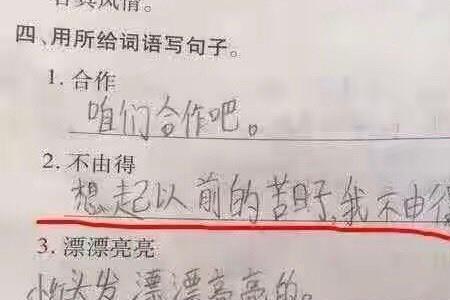 各具风情。
四、用所给词语写句子。
1. 合作
咱们合作吧。
2. 不由得
想起以前的苦日子,我不由得
3. 漂漂亮亮
头发漂漂亮亮的。